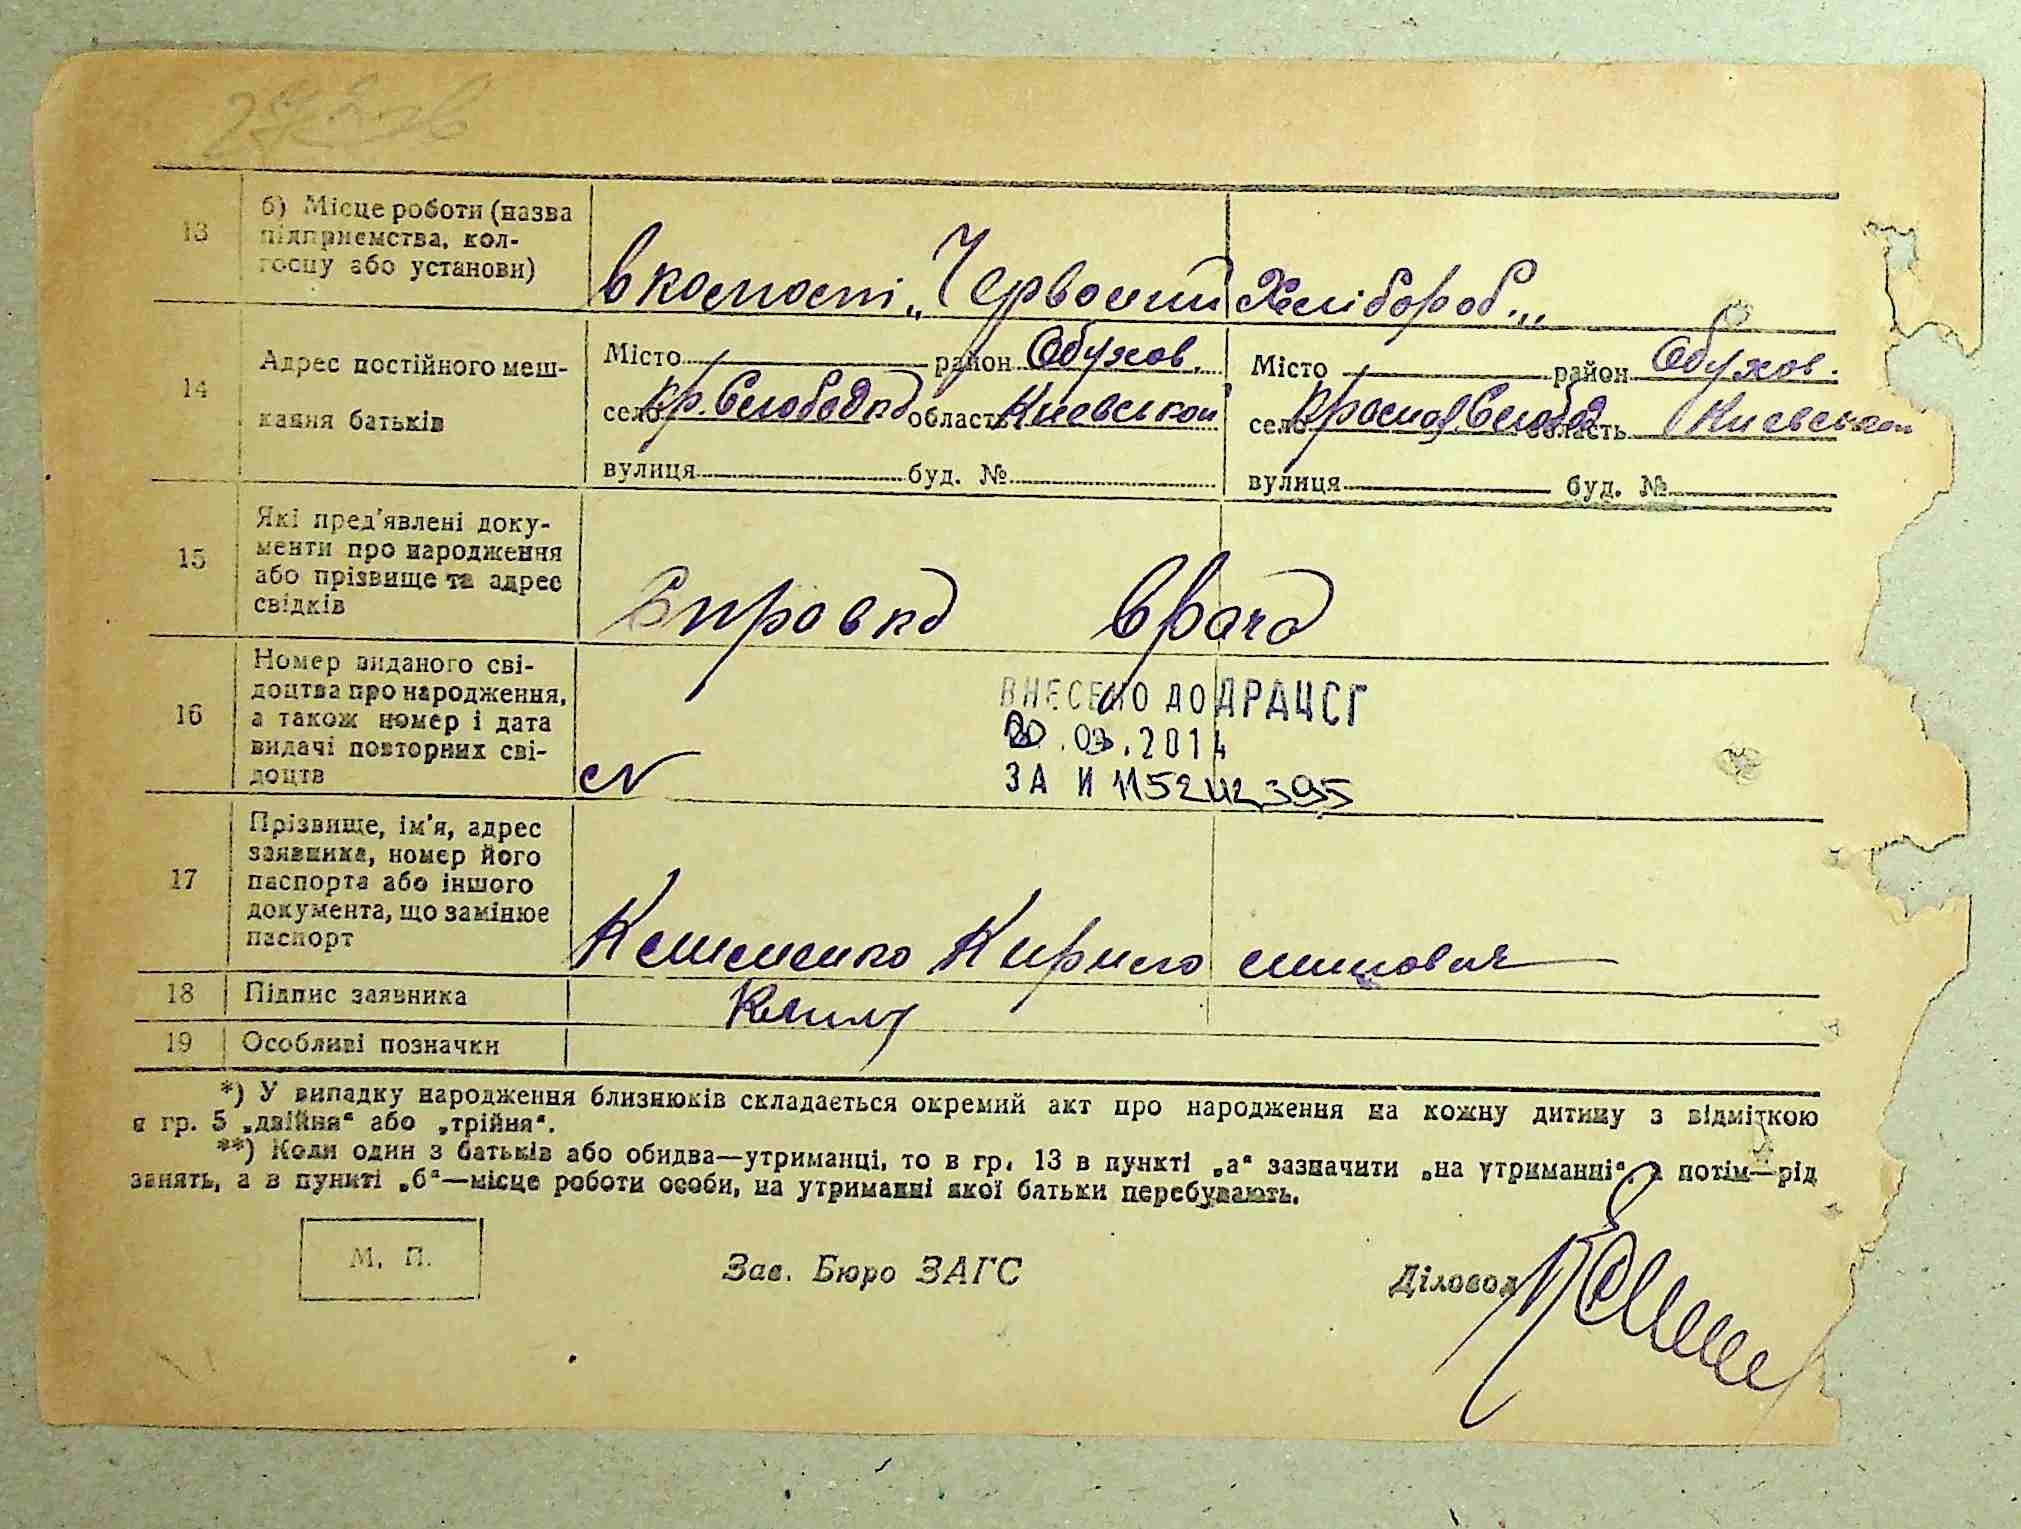 13 б) Місце роботи (назва
підприємства, кол-
госпу або установи)
в колгоспі „Червоний Хлібороб"
14 Адрес постійного меш-
кання батьків
Місто район Обухов.
село Кр. Слободка область Киевської
вулиця буд. №
Місто район Обухов.
село Красная Слобод область Киевської
вулиця буд. №
15 Які пред'явлені доку-
менти про народження
або прізвище та адрес
свідків
Справка врача
16 Номер виданого сві-
доцтва про народження,
а також номер і дата
видачі повторних сві-
доцтв
N
ВНЕСЕНО ДО ДРАЦСГ
20.03.2014
ЗА И
17 Прізвище, ім'я, адрес
заявника, номер його
паспорта або іншого
документа, що замінює
паспорт
Клименко Кирило
18 Підпис заявника
Клим
19 Особливі позначки
*) У випадку народження близнюків складається окремий акт про народження на кожну дитину з відміткою
в гр. 5 „двійня" або „трійня".
**) Коли один з батьків або обидва—утриманці, то в гр. 13 в пункті „а" зазначити „на утриманні", а потім—рід
занять, а в пункті „б"—місце роботи особи, на утриманні якої батьки перебувають.
М. П.
Зав. Бюро ЗАГС
Діловод